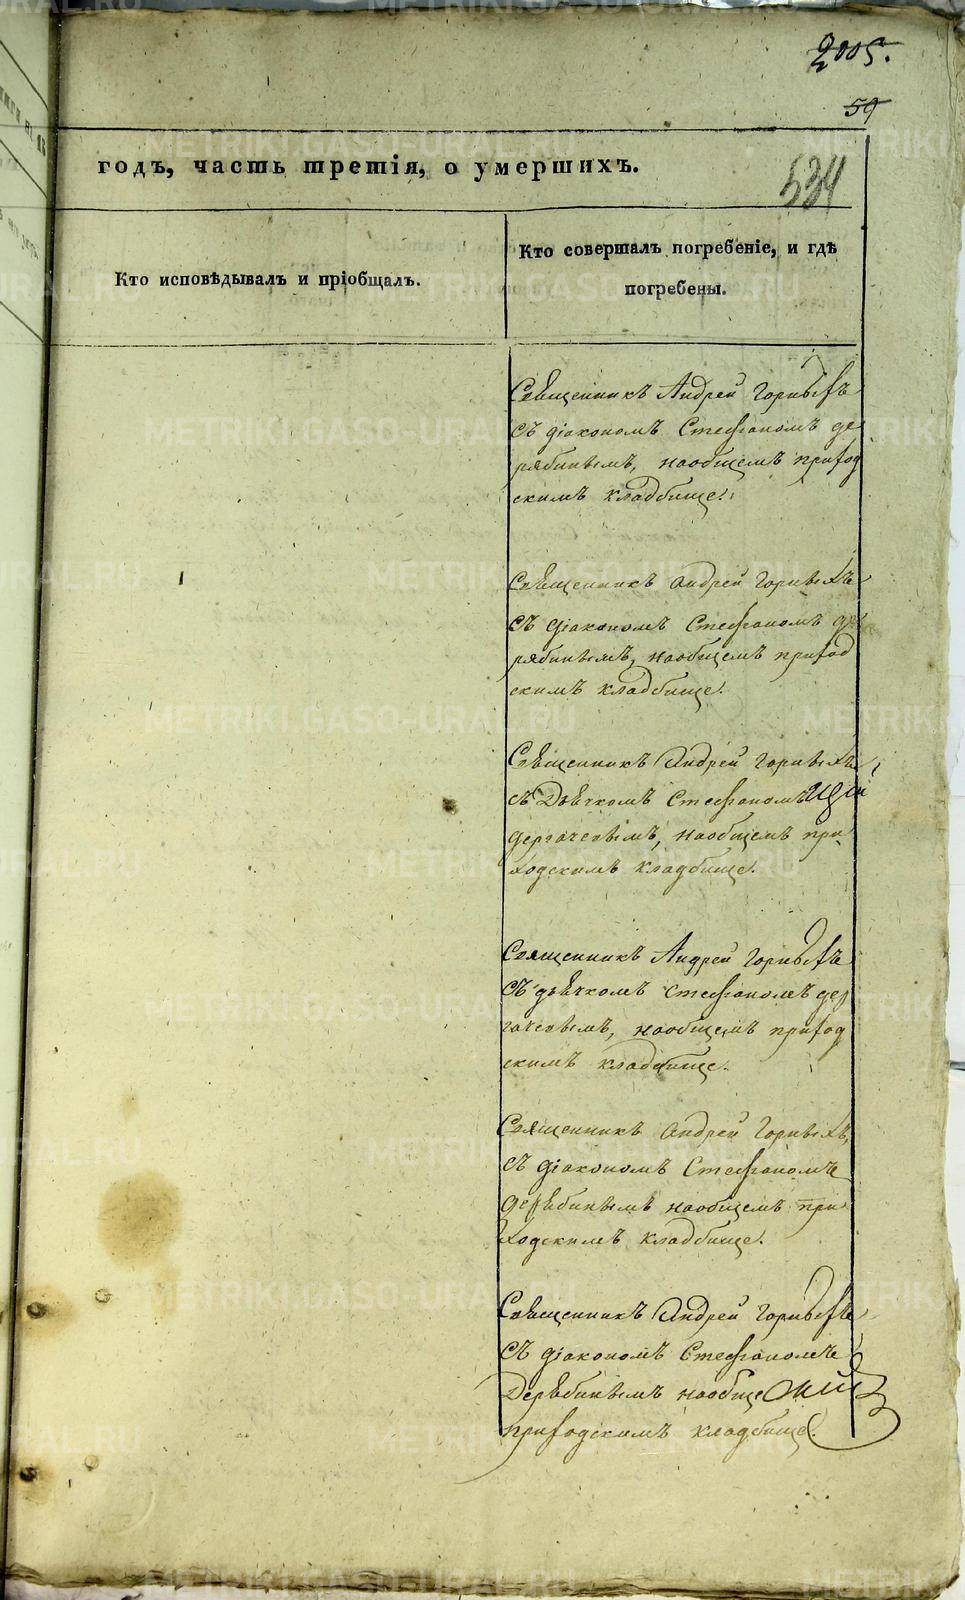 2005.
59
534
годъ, часть третія, о умершихъ.
Кто исповѣдывалъ и пріобщалъ.
Кто совершалъ погребеніе, и гдѣ
погребены.
Священникъ Андрей Горныхъ
съ діакономъ Стефаномъ де
рябинымъ, наобщемъ приход
скимъ кладбище.
Священникъ андрей Горныхъ
съ діакономъ Стефаномъ де
рябинымъ, наобщемъ приход
скимъ кладбище.
Священникъ Андрей Горныхъ
съ Дьячкомъ Стефаномъ
дергачевымъ, наобщемъ при
ходскимъ кладбище.
Священникъ Андрей Горныхъ
съ дьячкомъ стефаномъ дер
гачевымъ, наобщемъ приход
скимъ кладбище.
Священникъ андрей Горныхъ,
съ діакономъ Стефаномъ
дерябинымъ наобщемъ при
ходскимъ кладбище.
Священникъ Андрей Горныхъ
съ діакономъ Стефаномъ
Дерябинымъ наобще
приходскимъ кладбище.
METRIKI.GASO-URAL.RU